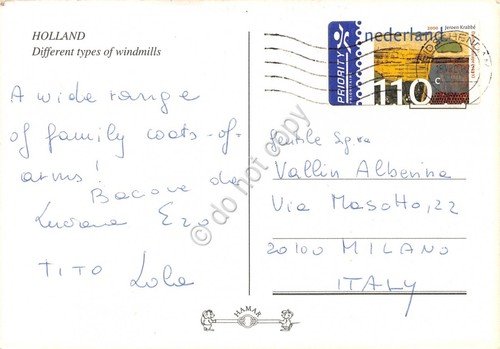 HOLLAND
Different types of windmills
A wide range
of family coats-of-
arms!
Bacove da
Luciana Ezo
TITO Lola
2000 Jeroen Krabbé
nederland
PRIORITY
110
c
Gentile Sig.ra
Vallin Alberina
Via Masotto, 22
20100 MILANO
ITALY
HAMAR
© do not copy